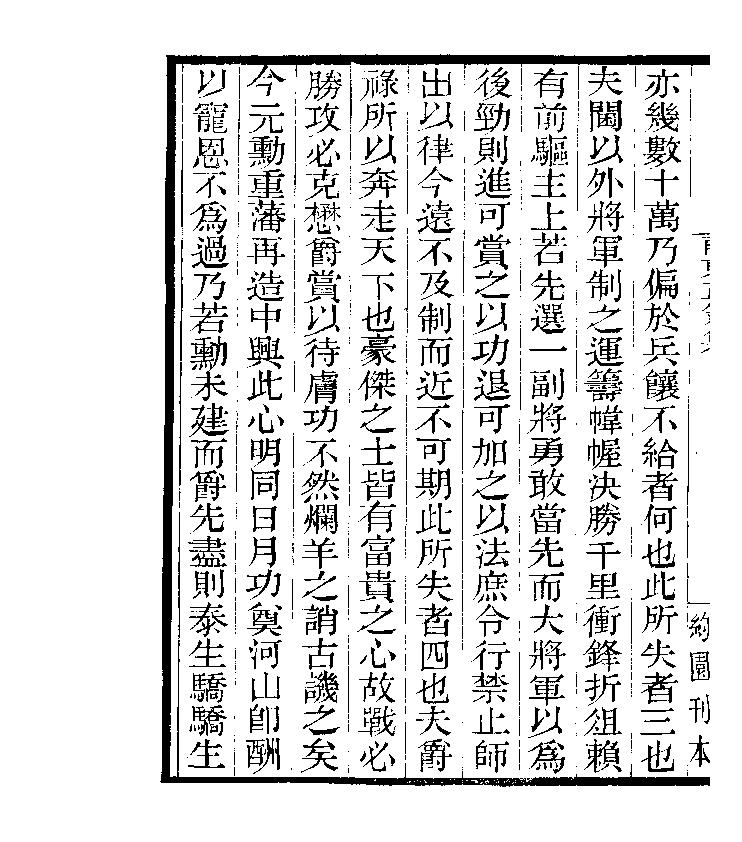 亦幾數十萬乃偏於兵饟不給者何也此所失者三也
夫閫以外將軍制之運籌幃幄決勝千里衝鋒折俎賴
有前驅主上若先選一副將勇敢當先而大將軍以爲
後勁則進可賞之以功退可加之以法庶令行禁止師
出以律今遠不及制而近不可期此所失者四也夫爵
祿所以奔走天下也豪傑之士皆有富貴之心故戰必
勝攻必克懋爵賞以待膚功不然爛羊之誚古譏之矣
今元勳重藩再造中興此心明同日月功奠河山卽酬
以寵恩不爲過乃若勳未建而爵先盡則泰生驕驕生
約園刊本